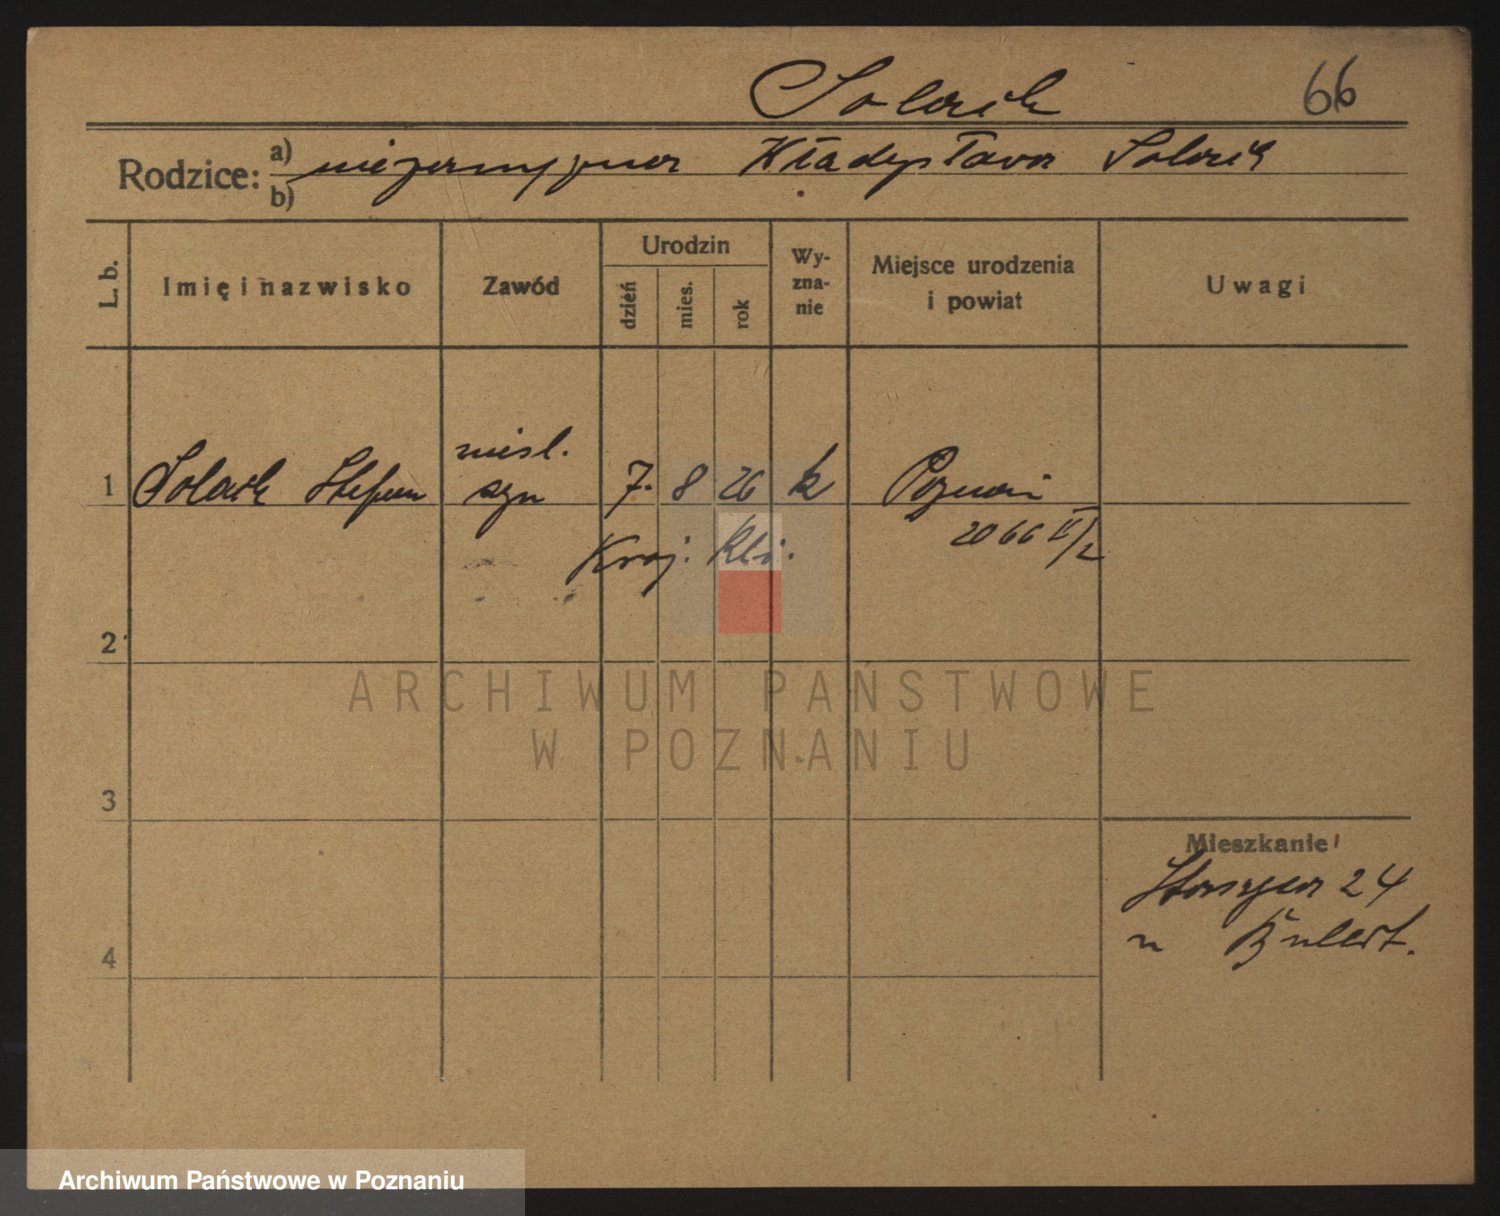 Solarek 66
Rodzice: a) niezamężna Władysława Solarek
b)
L. b. Imię i nazwisko Zawód Urodzin dzień mies. rok Wyznanie Miejsce urodzenia i powiat Uwagi
nieśl.
1 Solarek Stefan syn 7. 8 26 k Poznań
Kraj. Kli. 2066 II/2
2
3
Mieszkanie
24
4 u
ARCHIWUM PAŃSTWOWE
W POZNANIU
Archiwum Państwowe w Poznaniu